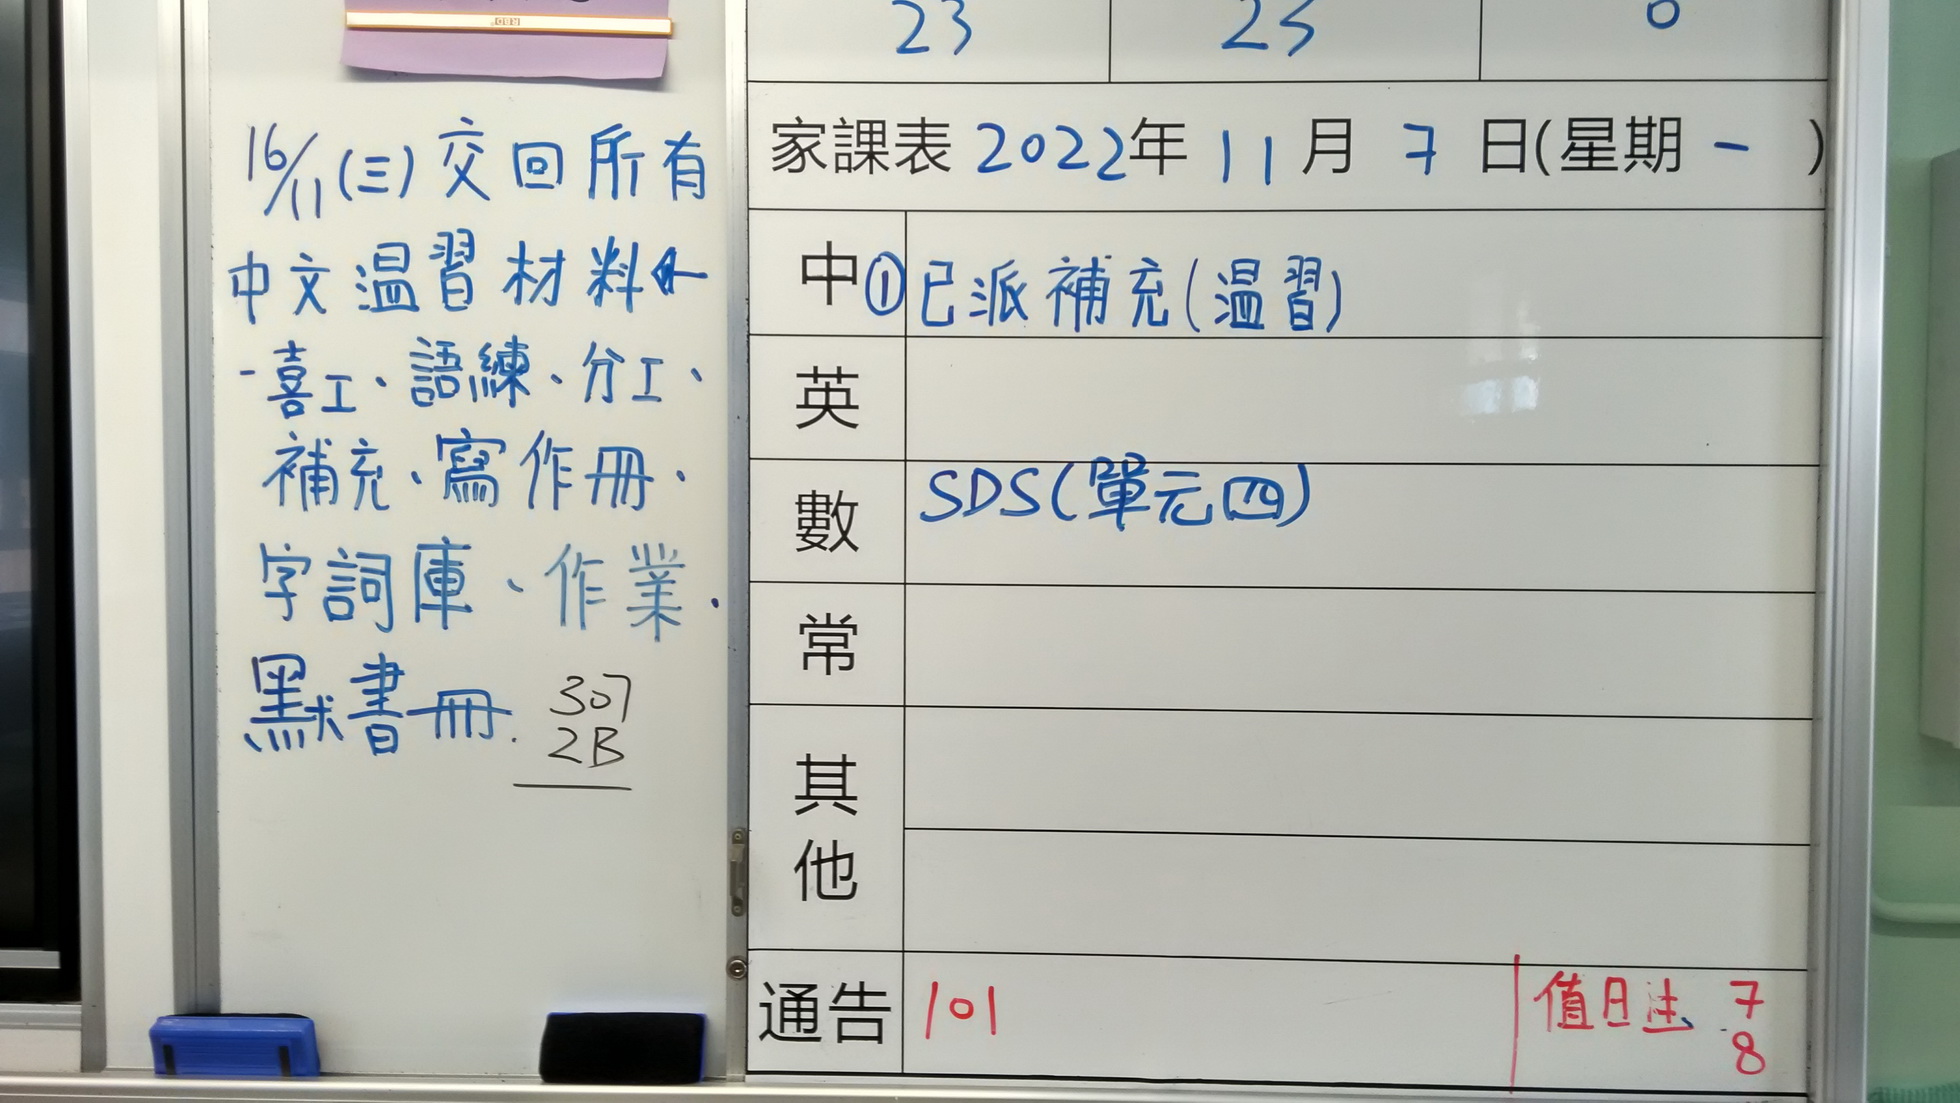 16/11(三)交回所有
中文温習材料←
-喜工、語練、分工、
補充、寫作冊、
字詞庫、作業、
默書冊.
307
2B
23 23 0
家課表 2022年 11月 7日(星期一)
中 ①已派補充(温習)
英
數 SDS(單元四)
常
其他
通告 101 值日生 7
8